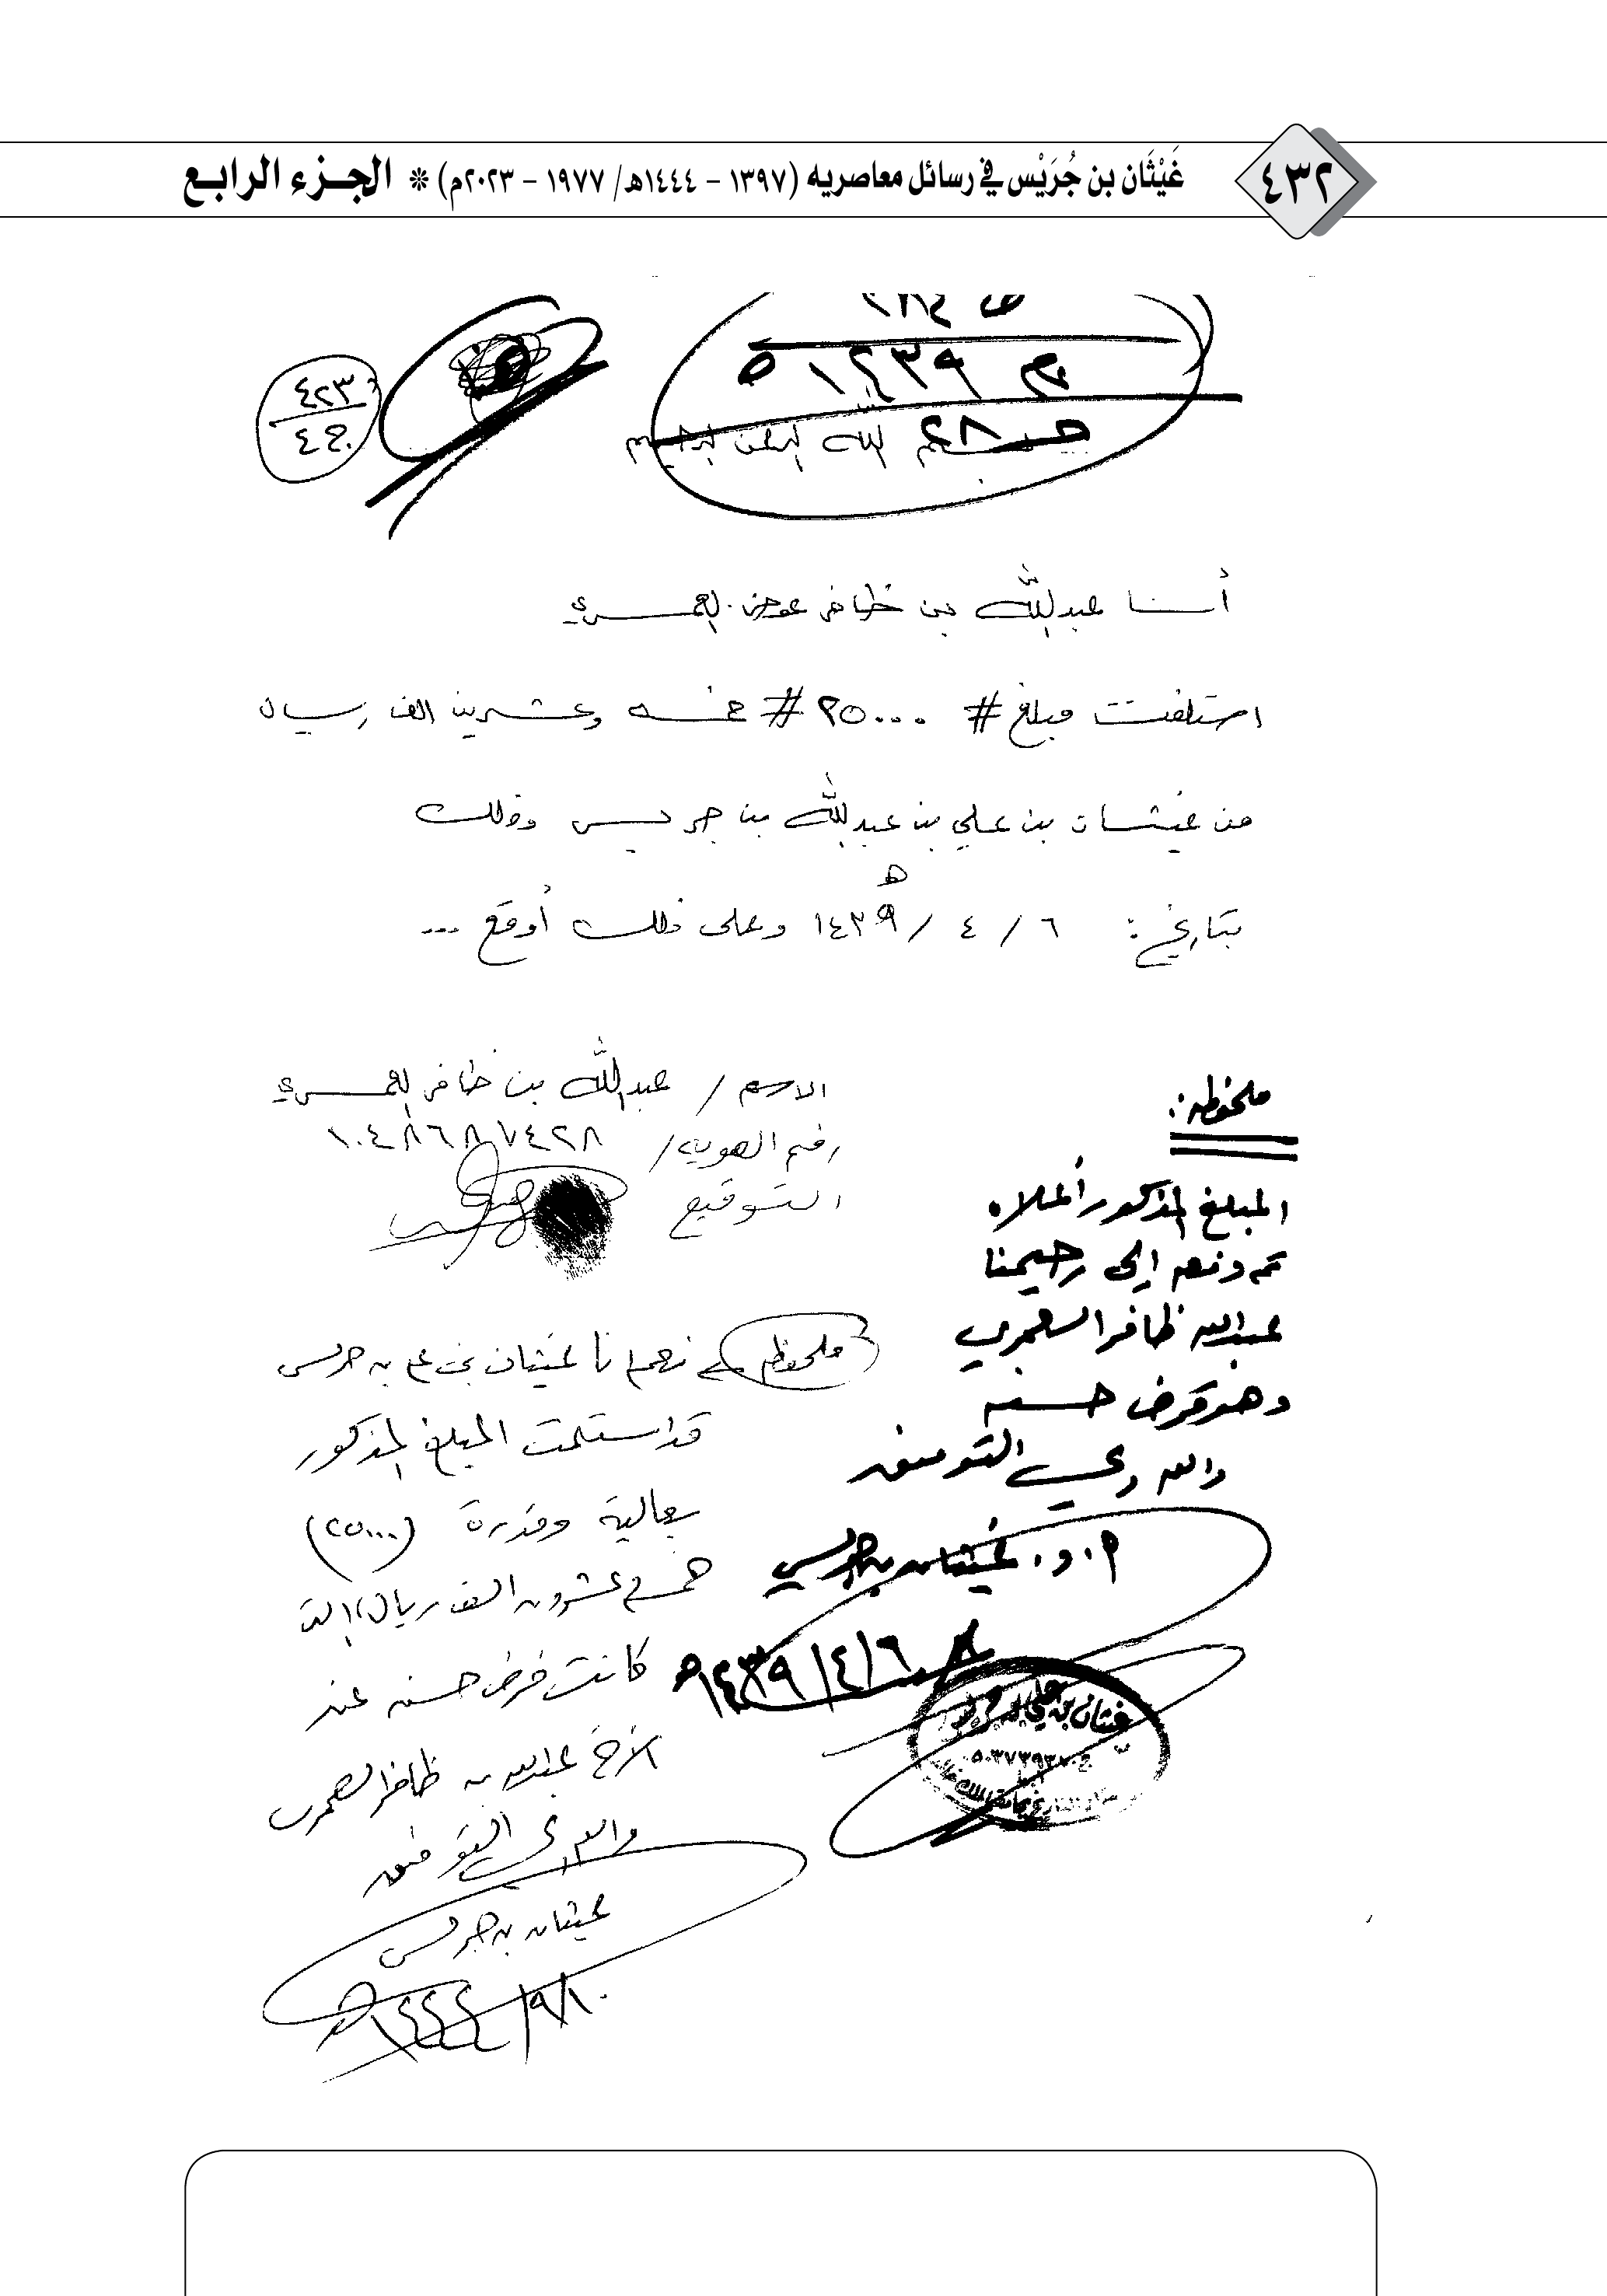 ٤٣٢
غَيْثَان بن جُرَيْس في رسائل معاصريه (١٣٩٧ - ١٤٤٤هـ/ ١٩٧٧ - ٢٠٢٣م) * الجزء الرابع
م ١٤٣٩ هـ
٤٢٣
ج ٤
بسم الله الرحمن الرحيم
أنا عبدالله بن ظافر عوض العمري
استلفت مبلغ # ٢٥٠٠٠ # خمسه وعشرين الف ريال
من غيثان بن علي بن عبدالله بن جريس وذلك
بتاريخ: ٦ / ٤ / ١٤٣٩ هـ وعلى ذلك أوقع ...
الاسم / عبدالله بن ظافر العمري
رقم الهوية / ١٠٤٨٦٨٧٤٢٨
التوقيع
ملحوظه:
المبلغ المذكور أعلاه
تم دفعه إلى رحيمنا
عبدالله ظافر العمري
وهو قرض حسنه
والله ولي التوفيق
أ. د. غيثان بن جريس
٦ / ٤ / ١٤٣٩هـ
غيثان بن علي بن جريس
ملحوظه نعم أنا غيثان بن علي بن جريس
قد استلمت المبلغ المذكور
بعالية وقدرة (٢٥٠٠٠)
خمسه وعشرون الف ريال، التي
كانت قرض حسنه عند
الأخ عبدالله بن ظافر العمري
والله ولي التوفيق
غيثان بن جريس
١٠ / ٩ / ١٤٤٤هـ